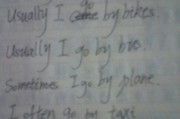 Usually I go by bikes.
Usually I go by bus
Sometimes I go by plane.
I often go by taxi